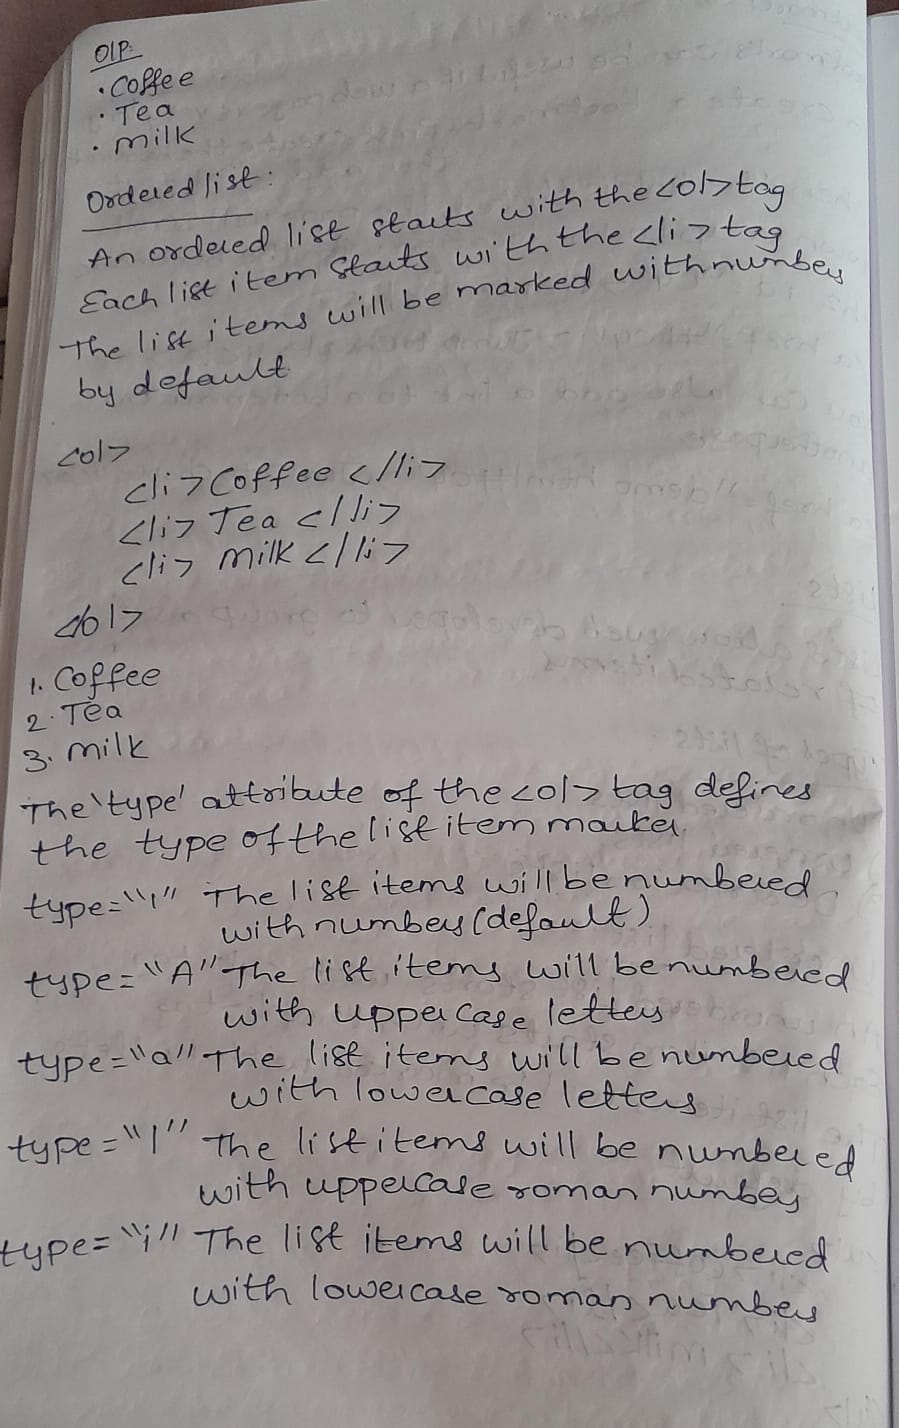 O/P:
• Coffee
• Tea
• milk
Ordered list:
An ordered list starts with the <ol> tag
Each list item starts with the <li> tag
The list items will be marked with numbers
by default
<ol>
<li> Coffee </li>
<li> Tea </li>
<li> milk </li>
</ol>
1. Coffee
2. Tea
3. milk
The 'type' attribute of the <ol> tag defines
the type of the list item marker.
type="1" The list items will be numbered
with numbers (default)
type="A" The list items will be numbered
with uppercase letters
type="a" The list items will be numbered
with lowercase letters
type="I" The list items will be numbered
with uppercase roman numbers
type="i" The list items will be numbered
with lowercase roman numbers